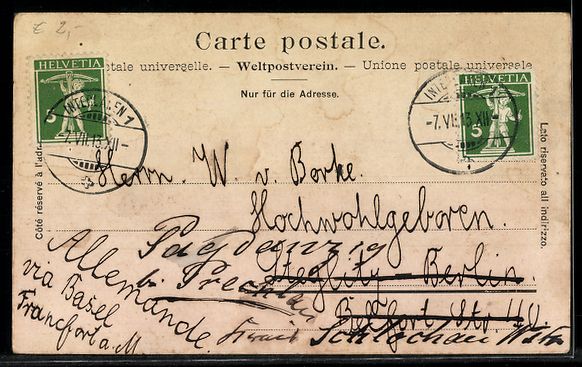 € 2,-
Carte postale.
postale universelle. — Weltpostverein. — Unione postale universale
Nur für die Adresse.
HELVETIA
5
INTERLAKEN 1
-7.VII.13.XII-
HELVETIA
5
-7.VII.13.XII-
Côté réservé à l'adr
Lato riservato all'indirizzo.
Herrn. W. v. Borke.
Hochwohlgeboren.
Steglitz - Berlin.
Belfort Str. 40.
Allemande.
via Basel
Francfort a. M.
bei
Schlochau